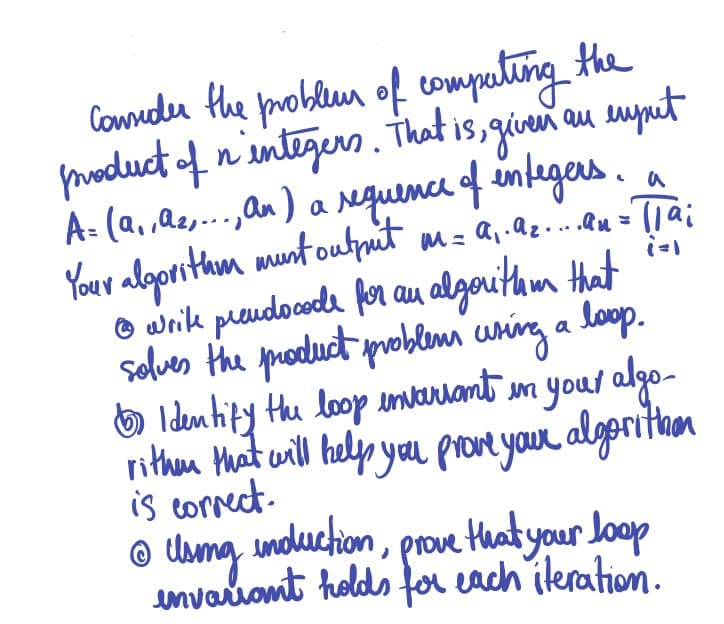 Consider the problem of computing the
product of n integers. That is, given an input
A = (a₁, a₂, ..., aₙ) a sequence of integers.
Your algorithm must output m = a₁·a₂·...·aₙ = ∏ᵢ₌₁ⁿ aᵢ
ⓐ write pseudocode for an algorithm that
solves the product problem using a loop.
ⓑ Identify the loop invariant in your algo-
rithm that will help you prove your algorithm
is correct.
ⓒ Using induction, prove that your loop
invariant holds for each iteration.